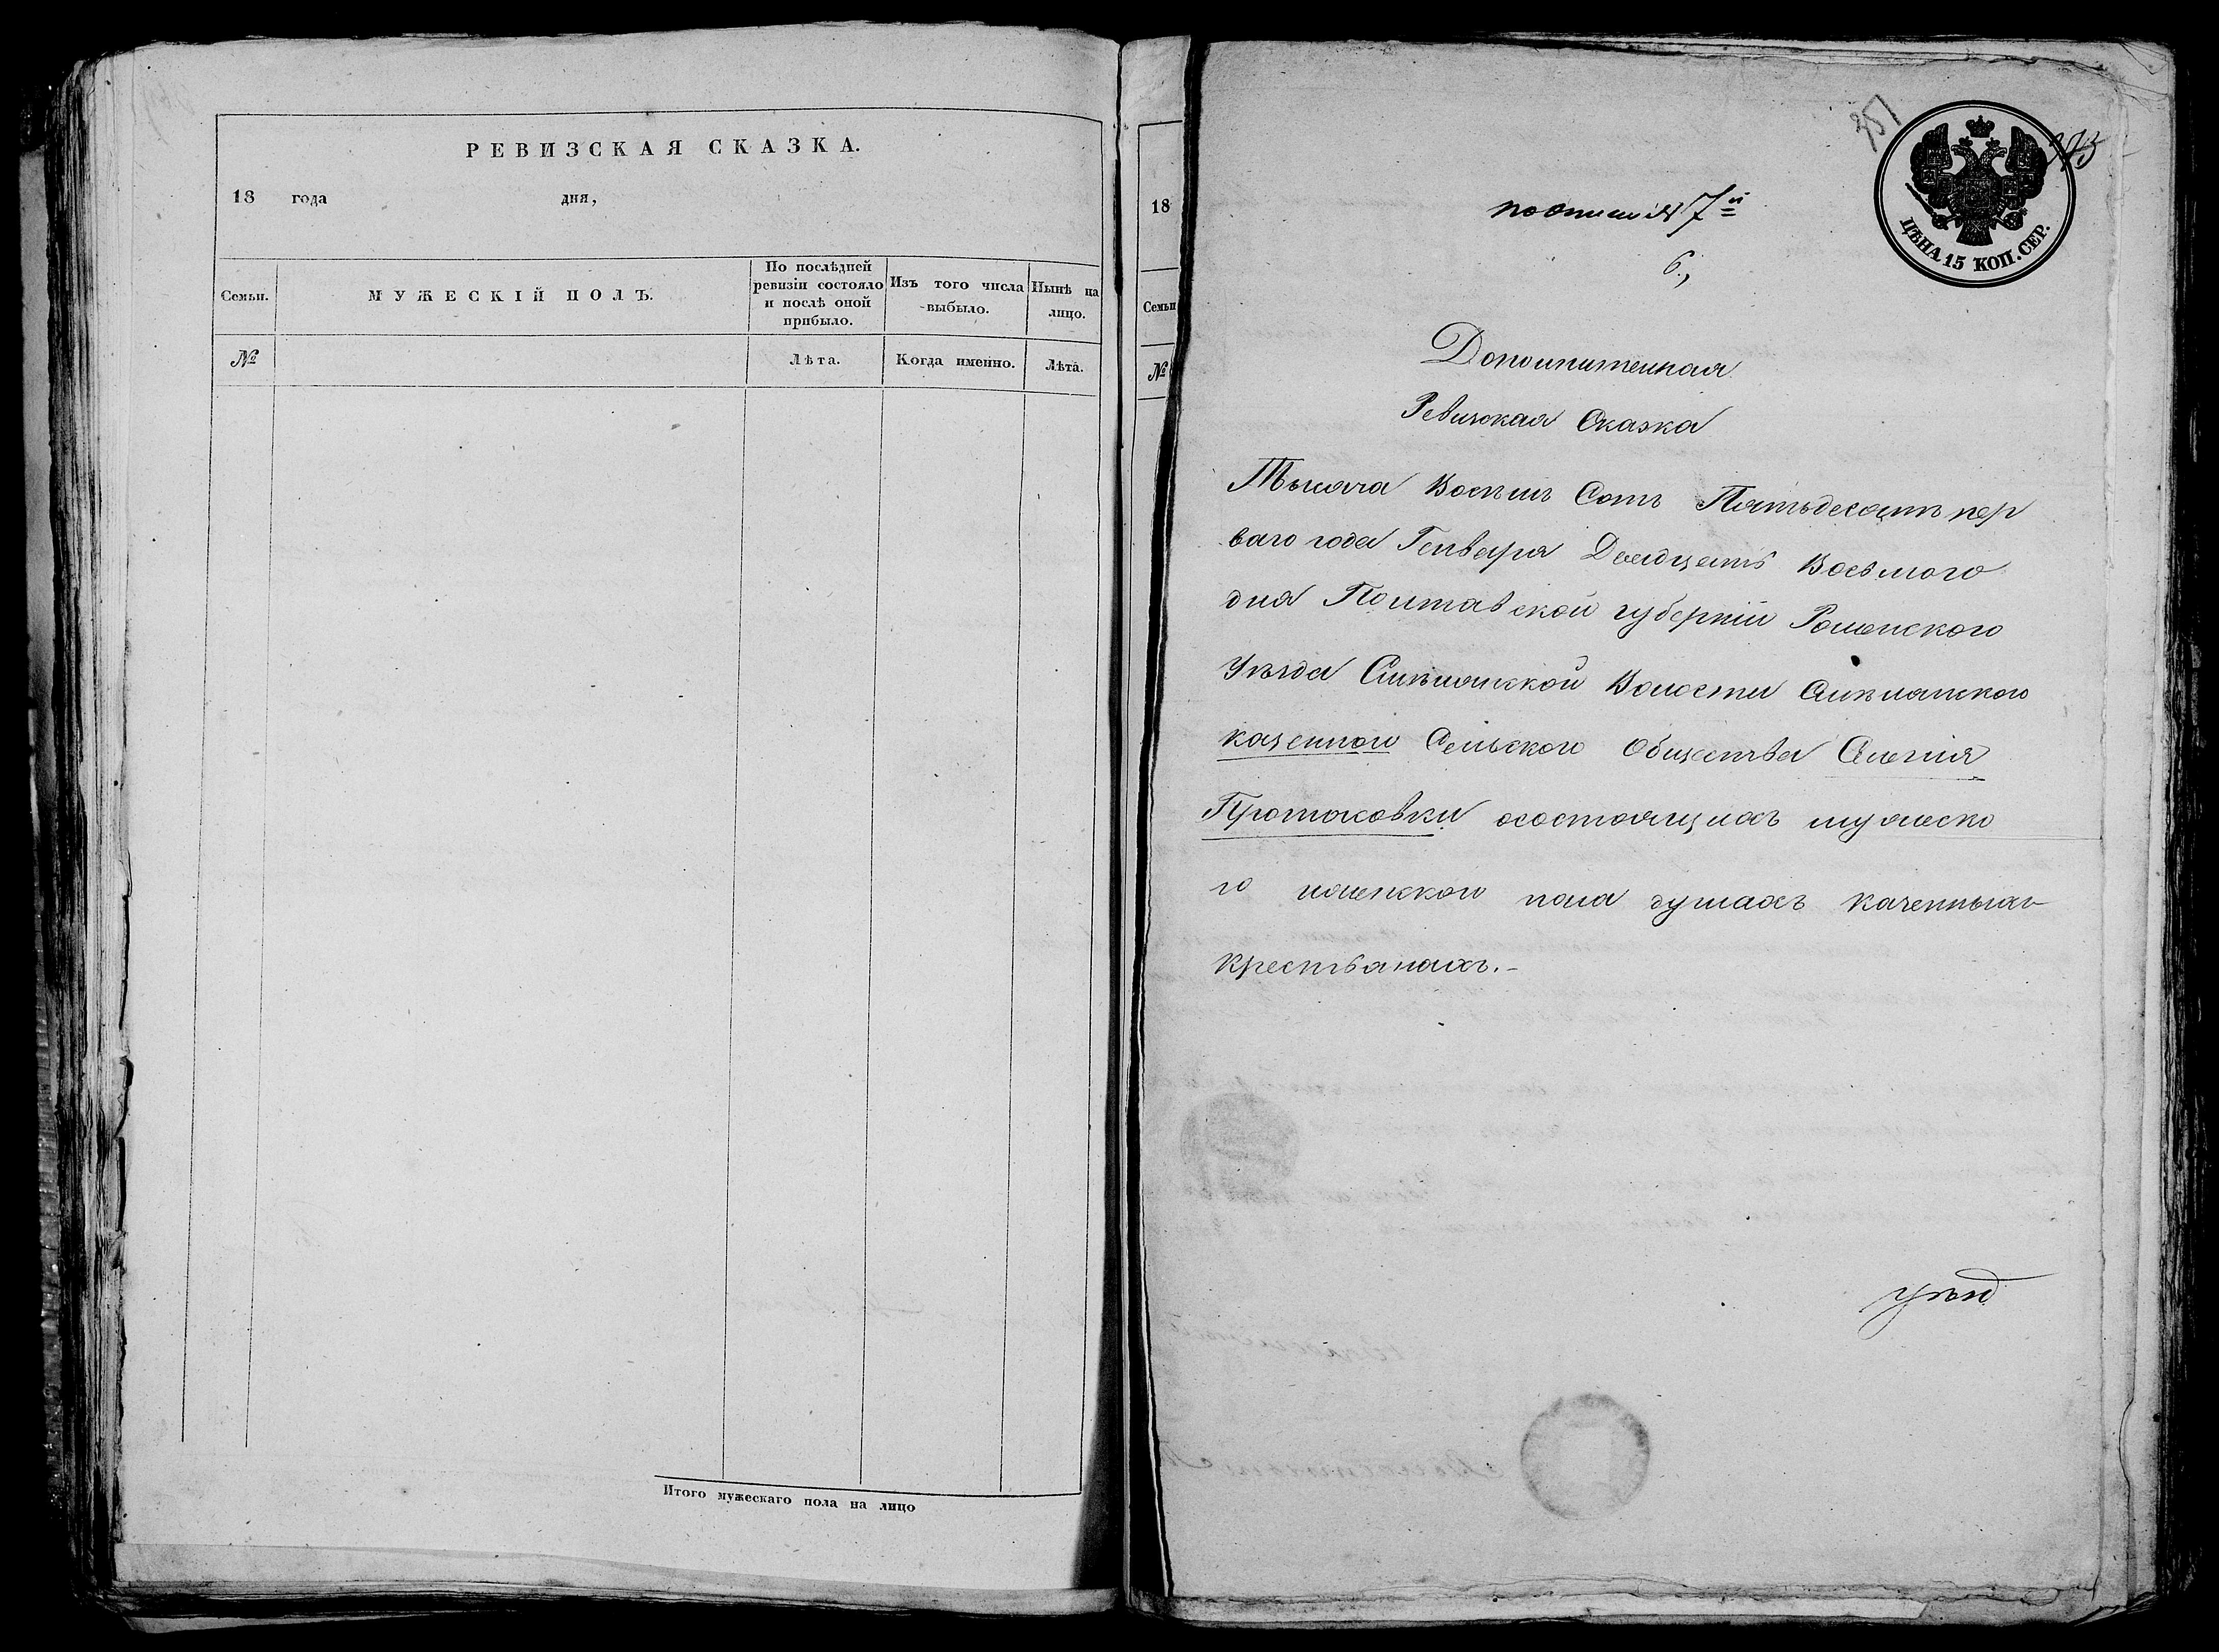 РЕВИЗСКАЯ СКАЗКА.
18 года дня,
Семьи.
МУЖЕСКІЙ ПОЛЪ.
По послѣдней
ревизіи состояло
и послѣ оной
прибыло.
Изъ того числа
выбыло.
Нынѣ на
лицо.
№
Лѣта.
Когда именно.
Лѣта.
Итого мужескаго пола на лицо
18
Семьи
№
351
ЦѢНА 15 КОП. СЕР.
по описи № 7й
6.,
Дополнителная
Ревизская Сказка
Тысяча Восѣмъ Сотъ Пятьдесятъ пер
ваго года Генваря Двадцать Восьмого
дня Полтавской губерніи Роменского
Уѣзда Смѣлянской Волости Смѣлянского
казенного Селького Общества Селенія
состоящихъ мужеско
го женского пола душахъ казенныхъ
крестьянахъ.-
уѣзд